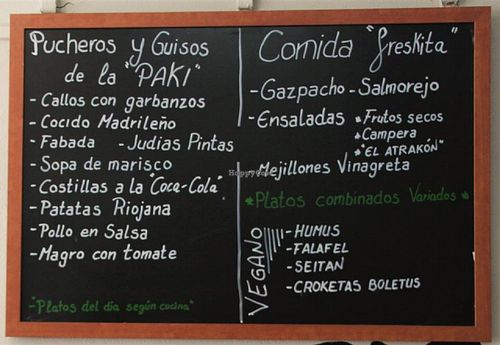 Pucheros y Guisos
de la "PAKI"
- Callos con garbanzos
- Cocido Madrileño
- Fabada - Judias Pintas
- Sopa de marisco
- Costillas a la "Coca-Cola"
- Patatas Riojana
- Pollo en Salsa
- Magro con tomate
"Platos del día según cocina"
Comida "freskita"
- Gazpacho - Salmorejo
- Ensaladas * Frutos secos
* Campera
* "EL ATRAKÓN"
- Mejillones Vinagreta
* Platos combinados Variados *
VEGANO
- HUMUS
- FALAFEL
- SEITAN
- CROKETAS BOLETUS
HappyCow